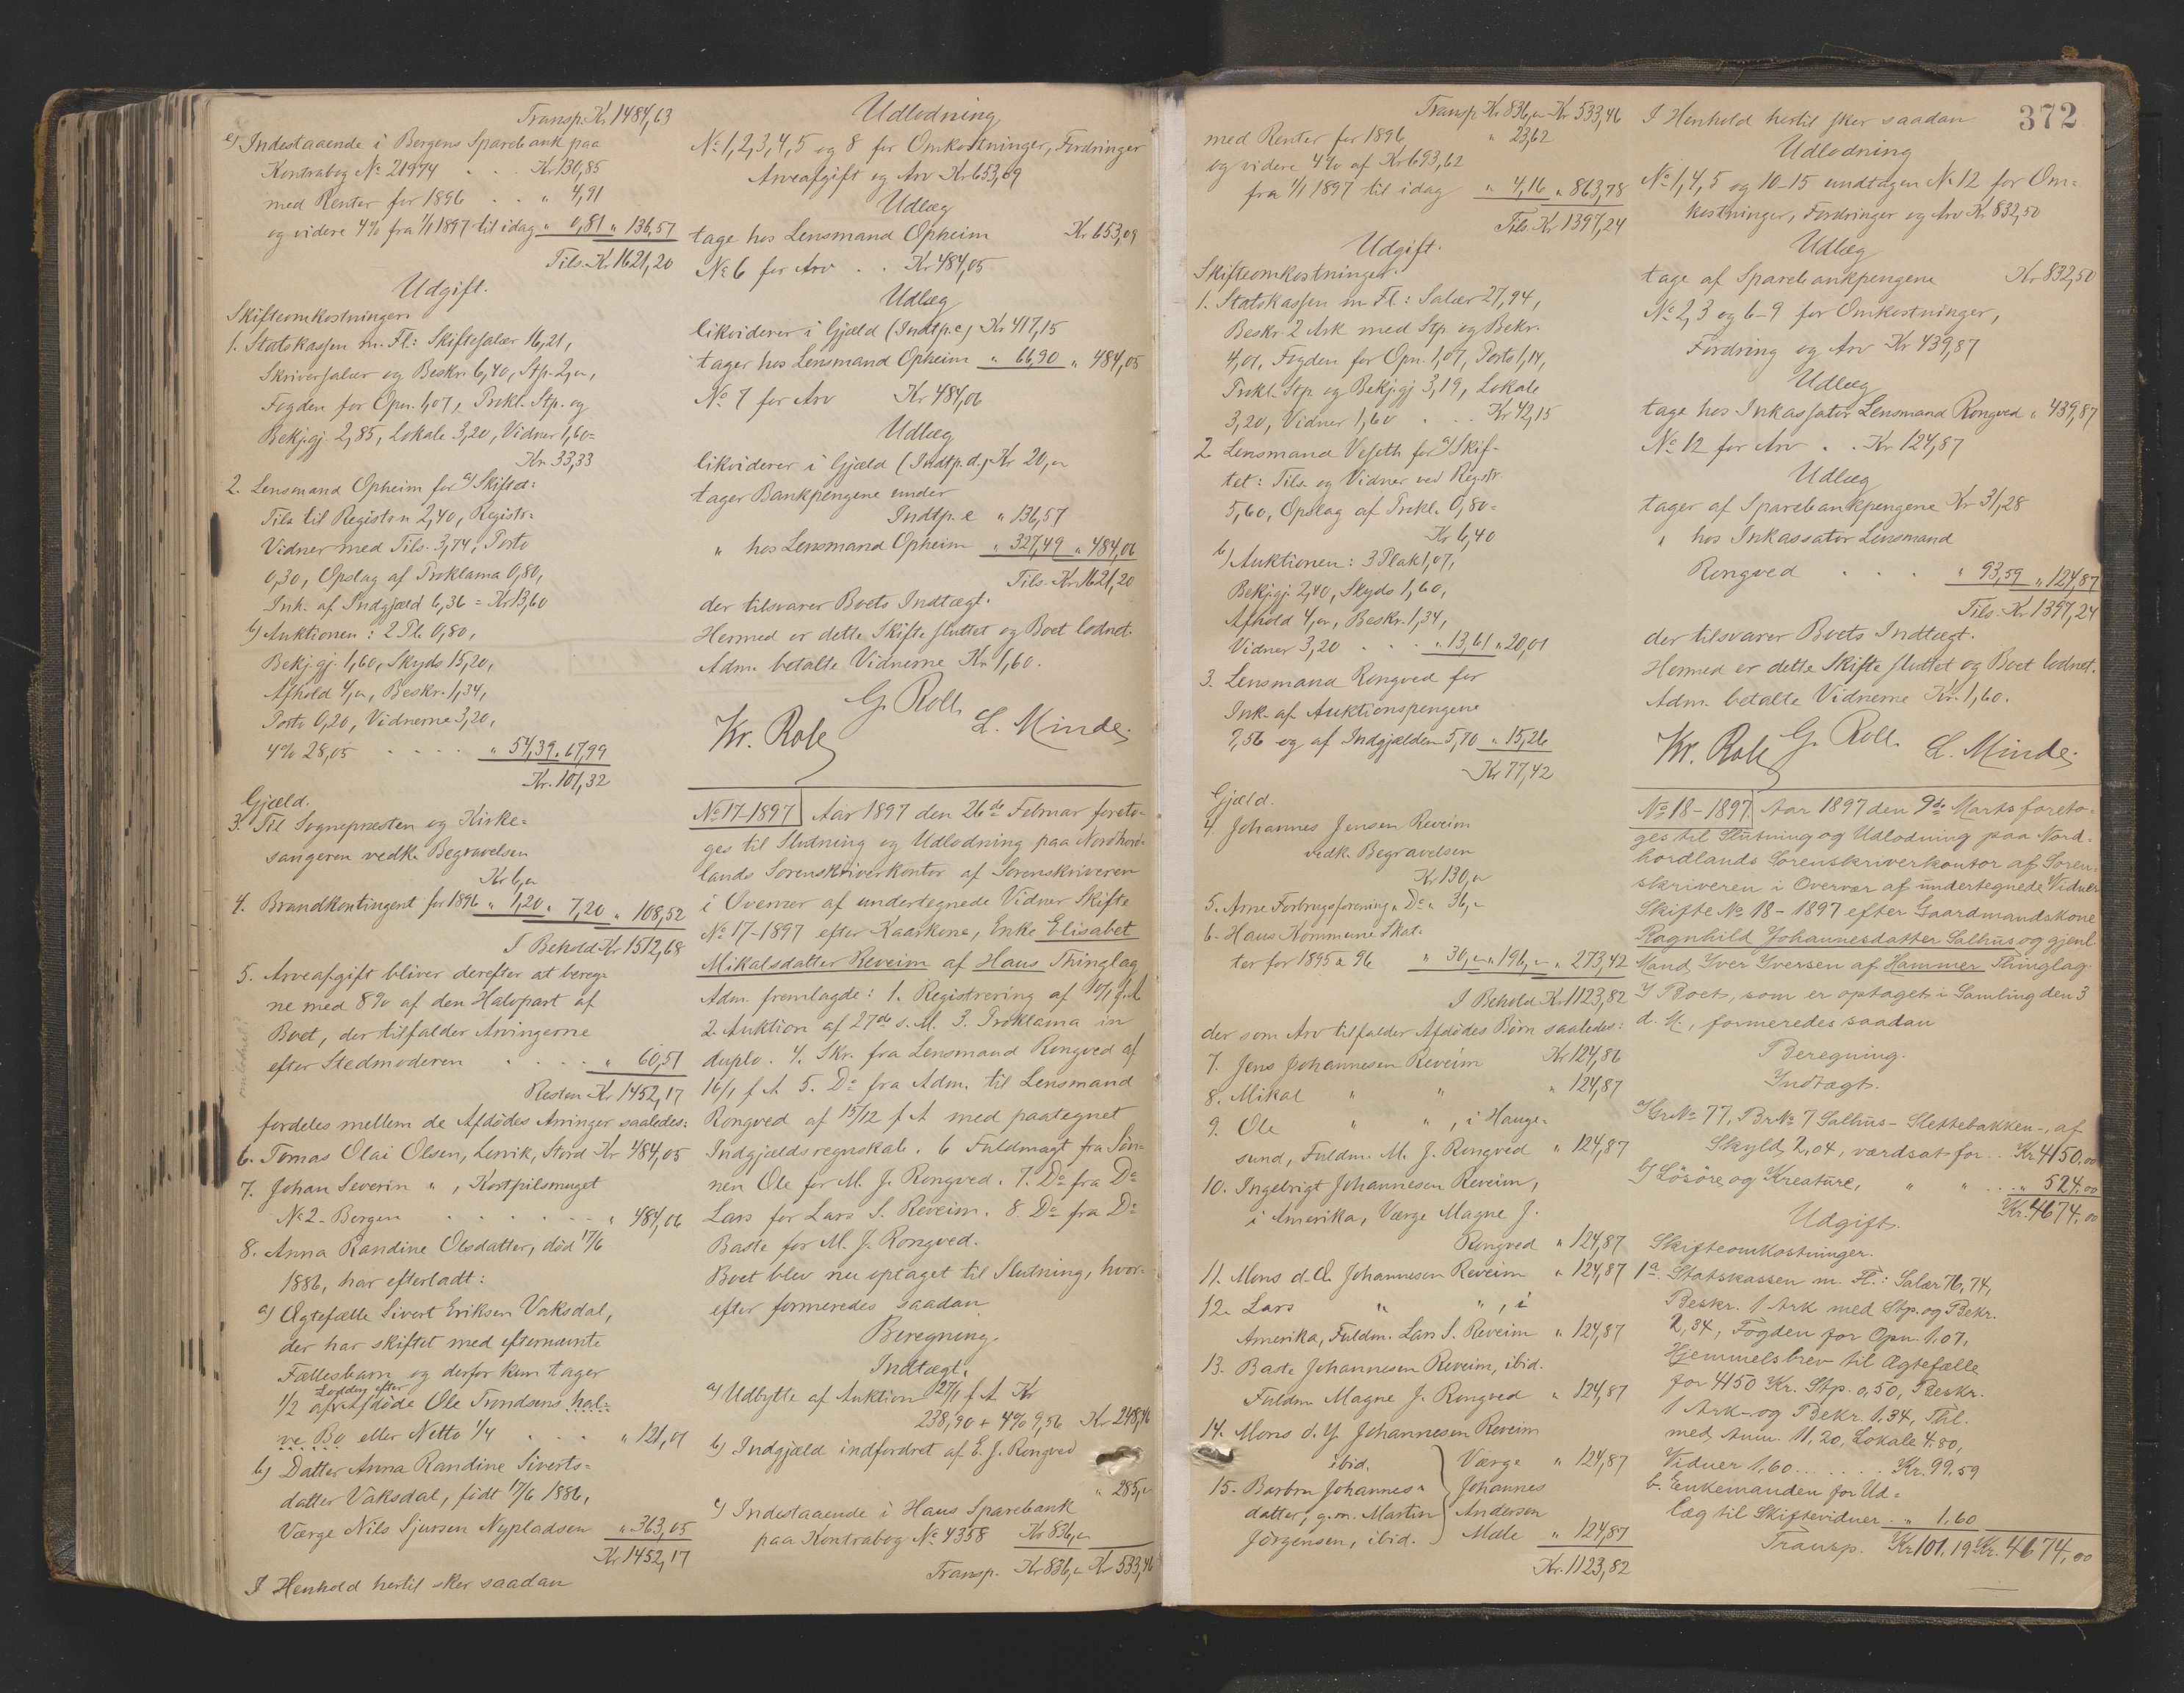 Transp. Kr 1484,63
e) Indestaaende i Bergens Sparebank paa
Kontrabog No 21974 . . Kr 130,85
med Renter for 1896 . . " 4,91
og videre 4% fra 1/1 1897 til idag " 0,81 " 136,57
Tils. Kr 1621,20
Udgift.
Skifteomkostninger.
1. Statskassen m. Fl.: Skiftesalær 16,21,
Skriversalær og Beskr. 6,40, Stp. 2,",
Fogden for Opn. 1,07, Prokl. Stp. og
Bekj.gj. 2,85, Lokale 3,20, Vidner 1,60=
Kr. 33,33
2. Lensmand Opheim for a) Skiftet:
Tils. til Registr.n 2,40, Registr=
Vidner med Tils. 3,74, Porto
0,30, Opslag af Proklama 0,80,
Ink. af Indgjæld 6,36 = Kr 13,60
b) Auktionen: 2 Pl. 0,80,
Bekj.gj. 1,60, Skyds 15,20,
Afhold 4,", Beskr. 1,34,
Porto 0,20, Vidnerne 3,20,
4% 28,05 . . . . " 54,39 " 67,99
Kr. 101,32
Gjæld.
3. Til Sognepræsten og Kirke=
sangeren vedk. Begravelsen
Kr 6,"
4. Brandkontingent for 1896 " 1,20 " 7,20 " 108,52
I Behold Kr 1512,68
5. Arveafgift bliver derefter at bereg=
ne med 8% af den Halvpart af
Boet, der tilfalder Arvingerne
efter Stedmoderen . . . . " 60,51
Resten Kr 1452,17
fordeles mellem de Afdødes Arvinger saaledes:
6. Tomas Olai Olsen, Lervik, Stord Kr 484,05
7. Johan Severin " , Kostpilsmuget
No 2 - Bergen . . . . . . " 484,06
8. Anna Randine Olsdatter, død 17/6
1886, har efterladt:
a) Ægtefælle Sivert Eriksen Vaksdal,
der har skiftet med efternævnte
Fællesbarn og derfor kun tager
1/2 af Lodden efter Afdøde Ole Trondsens hal=
ve Bo eller Netto 1/4 . . . . " 121,01
b) Datter Anna Randine Siverts=
datter Vaksdal, født 17/6 1886,
Værge Nils Sjursen Nypladsen " 363,05
Kr 1452,17
I Henhold hertil sker saadan
Udlodning
No 1,2,3,4,5 og 8 for Omkostninger, Fordringer
Arveafgift og Arv Kr 653,09
Udlæg
tage hos Lensmand Opheim Kr 653,09
No 6 for Arv . . Kr 484,05
Udlæg
likviderer i Gjæld (Indtp. c) Kr 417,15
tager hos Lensmand Opheim " 66,90 " 484,05
No 7 for Arv Kr 484,06
Udlæg
likviderer i Gjæld (Indtp. d.) Kr 20,"
tager Bankpengene under
Indtp. e " 136,57
" hos Lensmand Opheim " 327,49 " 484,06
Tils. Kr 1621,20
der tilsvarer Boets Indtægt.
Hermed er dette Skifte sluttet og Boet lodnet.
Adm. betalte Vidnerne Kr 1,60.
G. Roll.
Kr. Role L. Minde.
No 17-1897 Aar 1897 den 26de Februar foreto=
ges til Slutning og Udlodning paa Nordhord=
lands Sorenskriverkontor af Sorenskriveren
i Overvær af undertegnede Vidner Skifte
No 17-1897 efter Kaarkone, Enke Elisabet
Mikalsdatter Reveim af Haus Thinglag
Adm. fremlagde: 1. Registrering af 10/1 f. A
2. Auktion af 27de s. M. 3. Proklama in
duplo. 4. Skr. fra Lensmand Rongved af
16/1 f A 5. Do fra Adm. til Lensmand
Rongved af 15/12 f A med paategnet
Indgjældsregnskab. 6 Fuldmagt fra Søn=
nen Ole for M. J. Rongved. 7. Do fra Do
Lars for Lars S. Reveim. 8. Do fra Do
Baste for M. J. Rongved.
Boet blev nu optaget til Slutning, hvor=
efter formeredes saadan
Beregning.
Indtægt.
a) Udbytte af Auktion 27/1 f. A. Kr
238,90 + 4% 9,56 Kr 248,46
b) Indgjæld indfordret af E. J. Rongved
" 285,"
c) Indestaaende i Haus Sparebank
paa Kontrabog No 4358 Kr 836,"
Transp. Kr 836," Kr 533,46
372
Transp Kr 836," Kr 533,46
med Renter for 1896 " 23,62
og videre 4% af Kr 693,62
fra 1/1 1897 til idag " 4,16 " 863,78
Tils. Kr 1397,24
Udgift.
Skifteomkostninger.
1. Statskassen m Fl.: Salær 27,94,
Beskr. 2 Ark med Stp. og Bekr.
4,01, Fogden for Opn. 1,07, Porto 1,14,
Prokl. Stp. og Bekj.gj 3,19, Lokale
3,20, Vidner 1,60 . . Kr 42,15
2. Lensmand Veseth for a) Skif=
tet: Tils. og Vidner ved Registr
5,60, Opslag af Prokl. 0,80=
Kr 6,40
b) Auktionen: 3 Plak 1,07,
Bekj.gj. 2,40, Skyds 1,60,
Afhold 4,", Beskr. 1,34,
Vidner 3,20 . . . " 13,61 " 20,01
3. Lensmand Rongved for
Ink. af Auktionspengene
9,56 og af Indgjælden 5,70 " 15,26
Kr 77,42
Gjæld.
4 Johannes Jensen Reveim
vedk. Begravelsen
Kr 130,"
5. Arne Forbrugsforening " Do " 36,"
6. Haus Kommune Skat=
ter for 1895 a 96 " 30," " 196," " 273,42
I Behold Kr 1123,82
der som Arv tilfalder Afdødes Børn saaledes:
7. Jens Johannesen Reveim Kr 124,86
8. Mikal " " " 124,87
9. Ole " " , i Hauge=
sund, Fuldm. M. J. Rongved " 124,87
10. Ingebrigt Johannesen Reveim,
i Amerika, Værge Magne J.
Rongved " 124,87
11. Mons d. Æ. Johannesen Reveim " 124,87
12. Lars " " , i
Amerika, Fuldm. Lars S. Reveim " 124,87
13. Baste Johannesen Reveim, ibid.
Fuldm Magne J. Rongved " 124,87
14. Mons d. Y. Johannesen Reveim
ibid. Værge " 124,87
15. Barbra Johannes= Johannes
datter, g.m. Martin Andersen
Jørgensen, ibid. Mæle " 124,87
Kr. 1123,82
I Henhold hertil sker saadan
Udlodning
No 1,4,5 og 10-15 undtagen No 12 for Om=
kostninger, Fordringer og Arv Kr 832,50
Udlæg
tage af Sparebankpengene Kr 832,50
No 2,3 og 6-9 for Omkostninger,
Fordring og Arv Kr 439,87
Udlæg
tage hos Inkassator Lensmand Rongved " 439,87
No 12 for Arv . . Kr 124,87
Udlæg
tager af Sparebankpengene Kr 31,28
" hos Inkassator Lensmand
Rongved . . . " 93,59 " 124,87
Tils. Kr 1397,24
der tilsvarer Boets Indtægt.
Hermed er dette Skifte sluttet og Boet lodnet.
Adm betalte Vidnerne Kr. 1,60.
Kr. Role G. Roll. L. Minde.
No 18-1897. Aar 1897 den 9de Marts foreto=
ges til Slutning og Udlodning paa Nord=
hordlands Sorenskriverkontor af Soren=
skriveren i Overvær af undertegnede Vidner
Skifte No 18-1897 efter Gaardmandskone
Ragnhild Johannesdatter Salhus og gjenl
Mand Iver Iversen af Hammer Thinglag
I Boet, som er optaget i Samling den 3
d. M., formeredes saadan
Beregning.
Indtægt.
a) Gr No 77, Br No 7 Salhus - Slettebakken -, af
Skyld 2,04, værdsat for . . Kr 4150,00
b) Løsøre og Kreature, " " . . " 524,00
Kr. 4674,00
Udgift.
Skifteomkostninger.
1a. Statskassen m. Fl.: Salær 76,74,
Beskr. 1 Ark med Stp. og Bekr.
2,34, Fogden for Opn. 1.07,
Hjemmelsbrev til Ægtefælle
for 4150 Kr. Stp. 0,50, Beskr.
1 Ark og Bekr. 1.34, Thl.
med Anm. 11,20, Lokale 4.80,
Vidner 1.60 . . . . . Kr. 99.59
b. Enkemanden for Ud=
læg til Skiftevidner . " 1.60
Transp. Kr 101.19 Kr. 4674,00